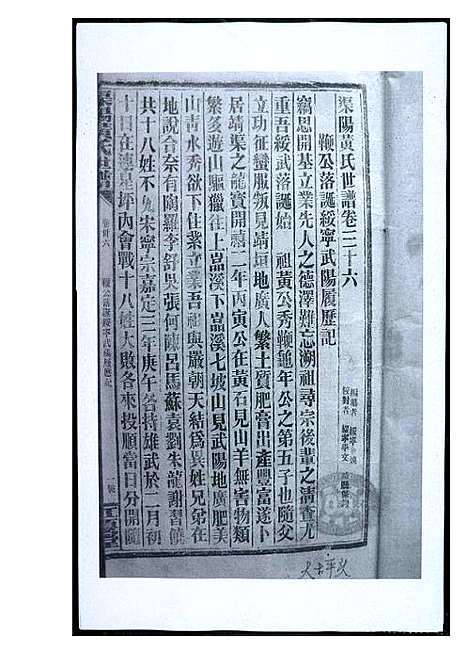 渠陽黃氏世譜卷三十六
鞭公落誕綏寧武陽履歷記
竊思開基立業先人之德澤難忘溯祖尋宗後輩之清查尤
重吾綏武落誕始祖黃公秀鞭龜年公之第五子也隨父
立功征蠻服叛見靖垣地廣人繁土質肥膏出產豐富遂卜
居靖渠之龍寶開禧二年丙寅公在黃石見山羊無害物類
繁多遊山驅獵往上嵓溪下嵓溪七坡山見武陽地廣肥美
山青水秀欲下住紮立業吾祖與嚴朝天結爲異姓兄弟在
地說合奈有陽羅李舒吳張何陳呂馬蘇袁劉朱龍謝晋饒
共十八姓不允宋寧宗嘉定三年庚午各持雄武於二月初
十日在連星坪內會戰十八姓大敗各來投順當日分開隨
卷卅六